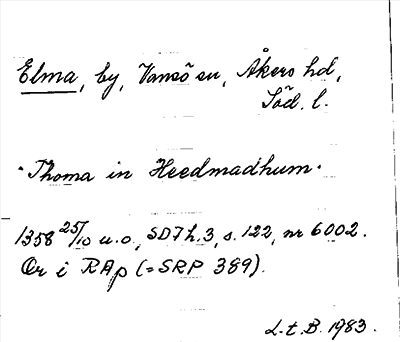 Elma, by, Vansö sn, Åkers hd,
Söd. l.
"Thoma in Heedmadhum"
1358 25/10 u.o., SD7h.3, s.122, nr 6002.
Or i RAp (=SRP 389).
L.t.B. 1983.